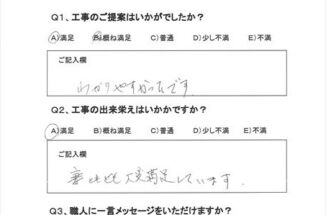 Q1、工事のご提案はいかがでしたか？
A)満足 B)概ね満足 C)普通 D)少し不満 E)不満
ご記入欄
わかりやすかったです
Q2、工事の出来栄えはいかかですか？
A)満足 B)概ね満足 C)普通 D)少し不満 E)不満
ご記入欄
大変満足しています.
Q3、職人に一言メッセージをいただけますか？